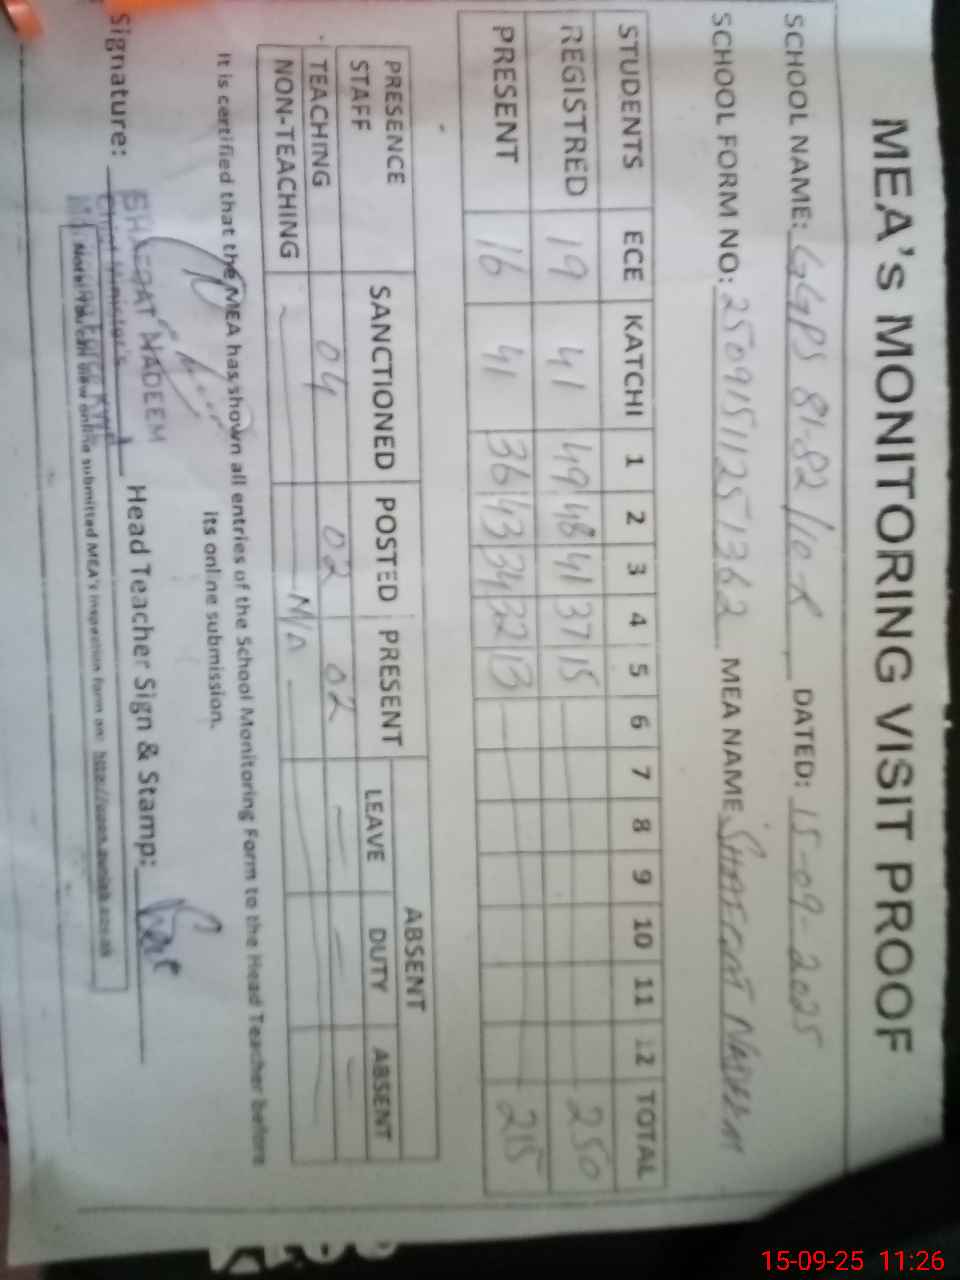 MEA's MONITORING VISIT PROOF
SCHOOL NAME: GGPS 81-82/10-R DATED: 15-09-2025
SCHOOL FORM NO: 25091511251362 MEA NAME SHAFCAT NADEEM
STUDENTS ECE KATCHI 1 2 3 4 5 6 7 8 9 10 11 12 TOTAL
REGISTRED 19 41 49 48 41 37 15 250
PRESENT 16 41 36 43 34 32 13 215
PRESENCE STAFF SANCTIONED POSTED PRESENT ABSENT
LEAVE DUTY ABSENT
TEACHING 04 02 02
NON-TEACHING
It is certified that the MEA has shown all entries of the School Monitoring Form to the Head Teacher before
its online submission.
Signature: Head Teacher Sign & Stamp:
SHAFQAT NADEEM
Chief Minister's
view online submitted MEA's inspection form on:
15-09-25 11:26